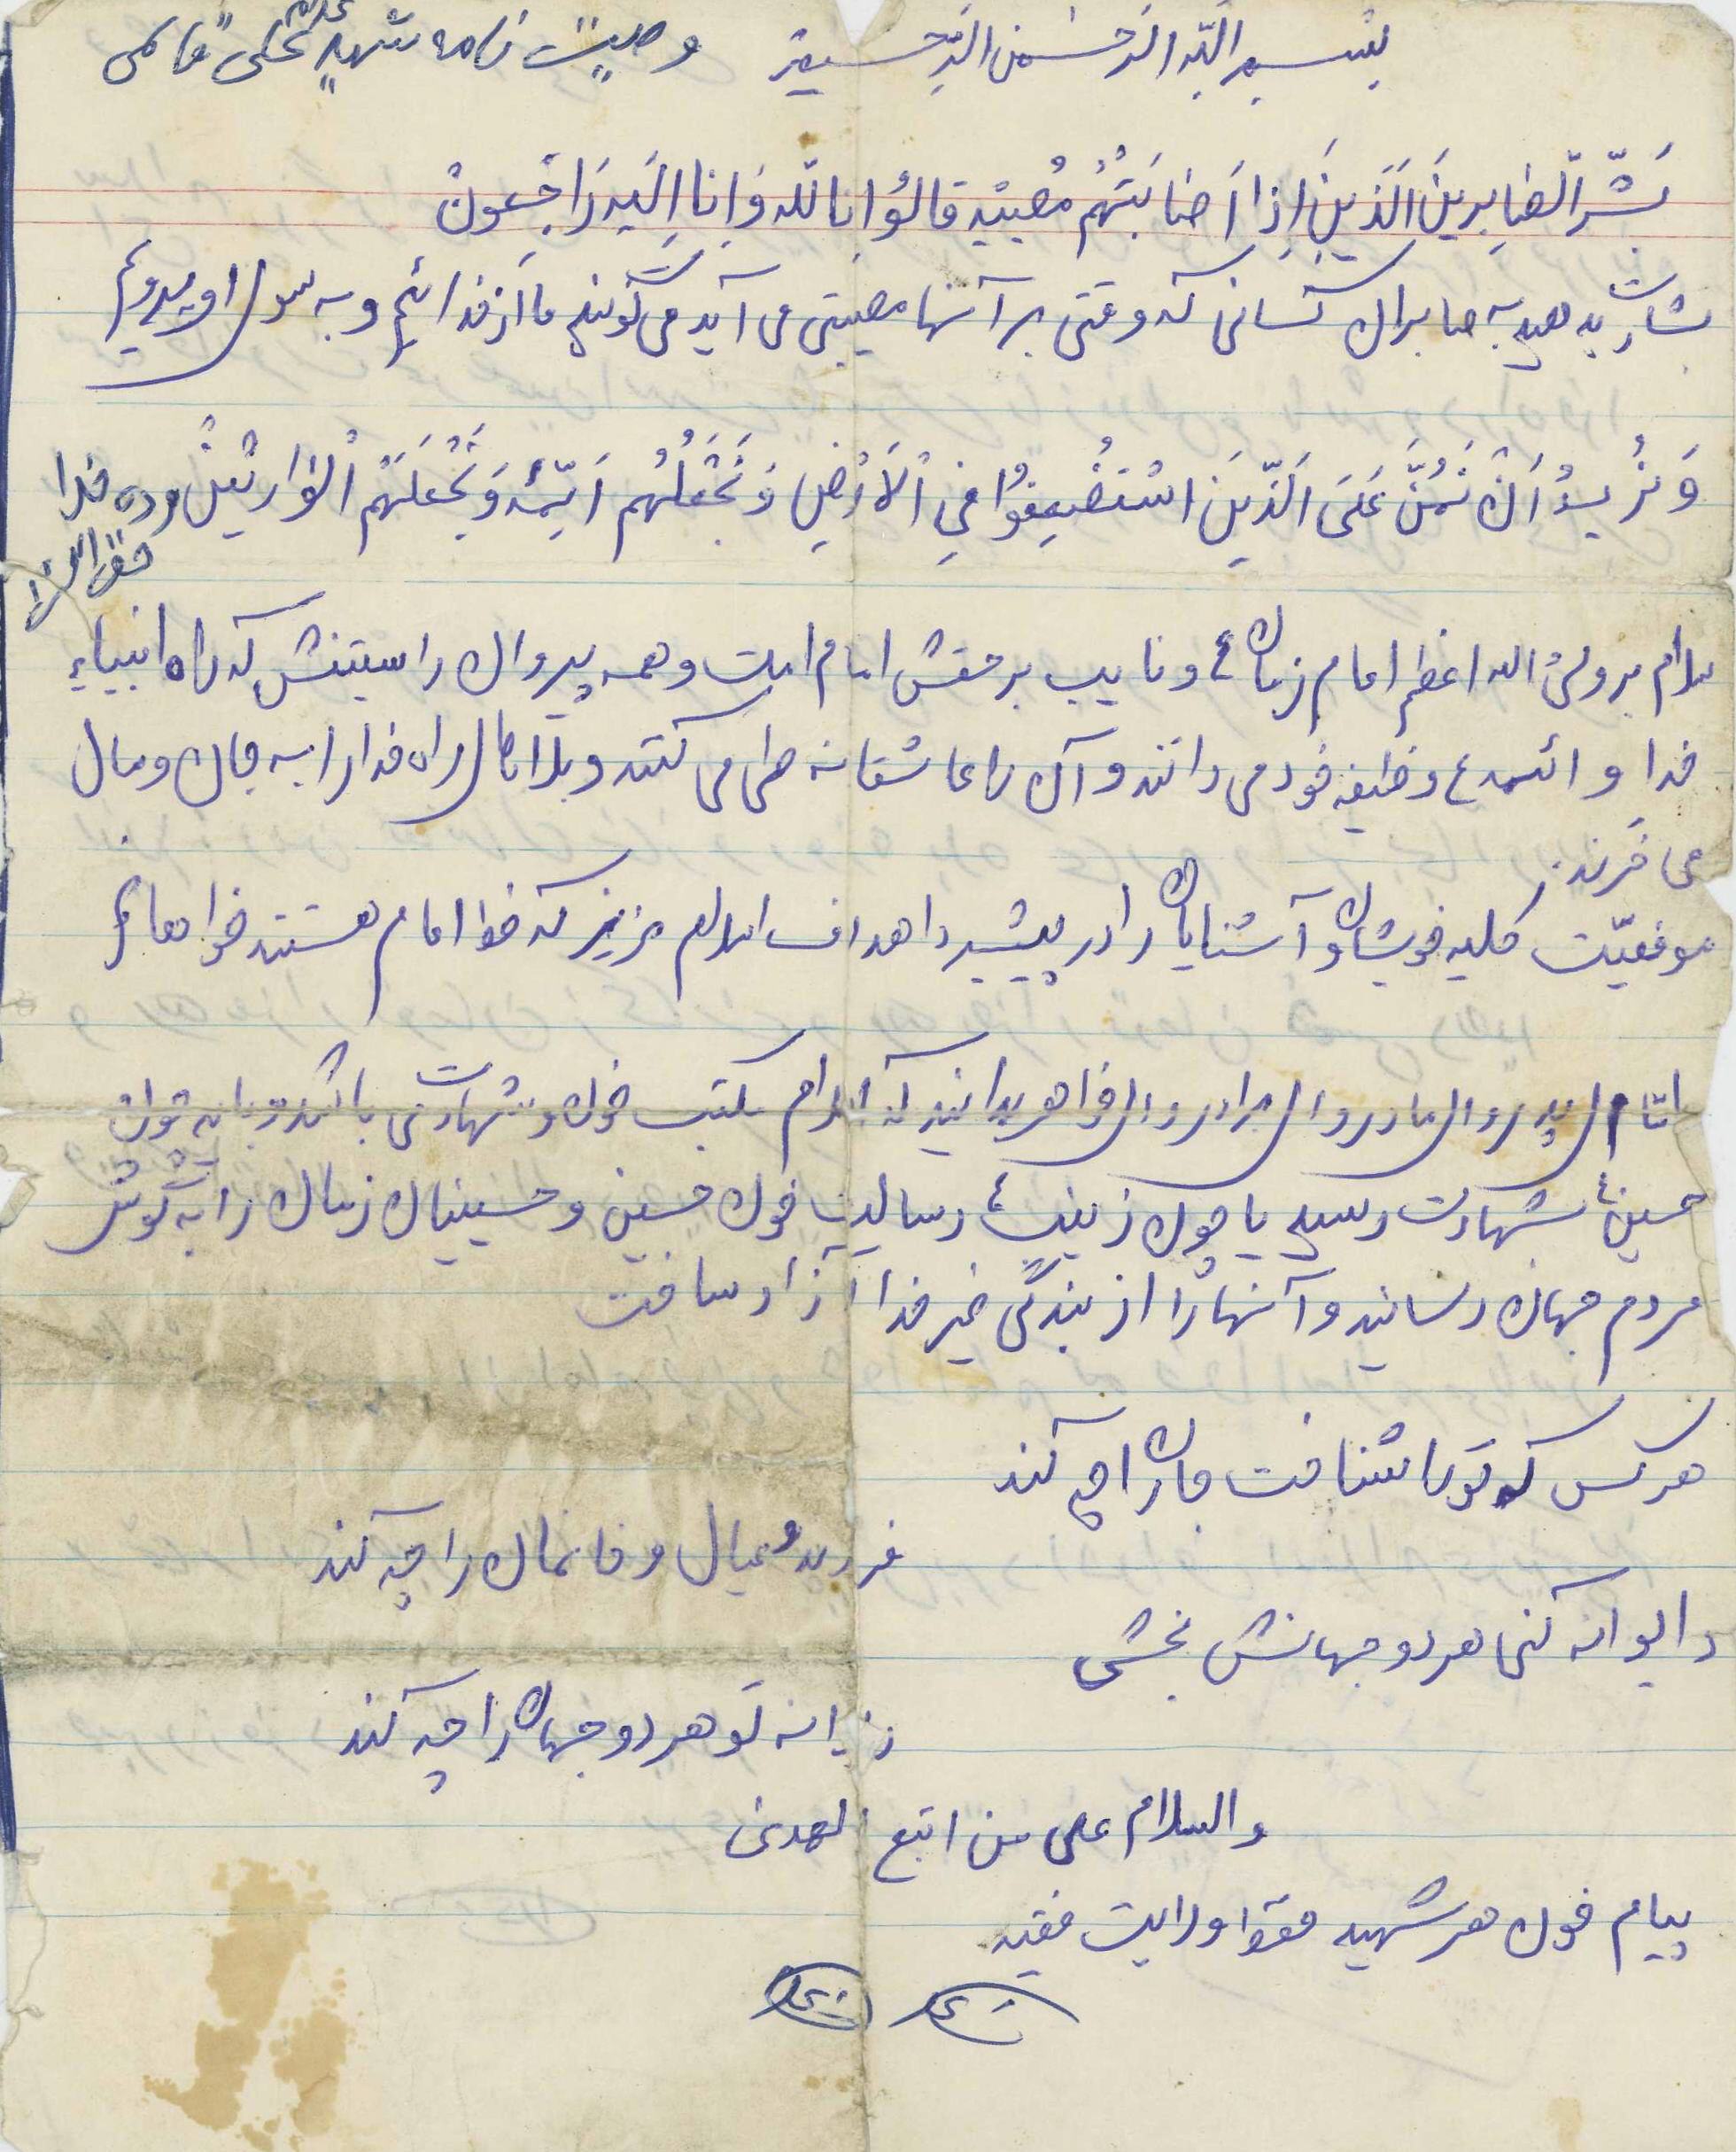 بسم الله الرحمن الرحیم وصیت نامه شهید غلامعلی قاسمی
بَشِّرِ الصّابِرینَ الَّذینَ اِذا اَصابَتْهُم مُصیبَة قالُوا انا لله وَ انا اِلَیه رَاجِعونْ
بشارت بدهید به صابران کسانی که وقتی بر آنها مصیبتی می آید می گویند ما از خدائیم و به سوی او میرویم
وَ نُریدُ اَنْ نَمُنَّ عَلَی الَّذینَ اسْتَضْعِفوُا فیِ الْاَرْضِ وَ نَجْعَلُهُم اَئِمَّه وَ نَجْعَلَهُمْ الْوارِثینْ وعده خدا
حق است
سلام بر ولی الله اعظم امام زمان ع و نایب بر حقش امام امت و همه پیروان راستینش که راه انبیاء
خدا و ائمه ع وظیفه خود می دانند و آن را عاشقانه طی می کنند و بلاهای راه خدا را به جان و مال
می خرند.
موفقیّت کلیه خویشان و آشنایان را در پیشبرد اهداف اسلام عزیز که خط امام هستند خواهانم
امّا ای پدر و ای مادر و ای برادر و ای خواهر بدانید که اسلام مکتب خون و شهادت می باشد و یا باید چون
حسین ع بشهادت رسید یا چون زینب ع رسالت خون حسین و حسینیان زمان را به گوش
مردم جهان رسانید و آنها را از بندگی غیر خدا آزاد ساخت
هر کس که تو را شناخت جان را چه کند
فرزند و عیال و خانمان را چه کند
دیوانه کنی هر دو جهانش بخشی
دیوانه تو هر دو جهان را چه کند
والسلام علی من اتبع الهدی
پیام خون هر شهید فقط ولایت فقیه